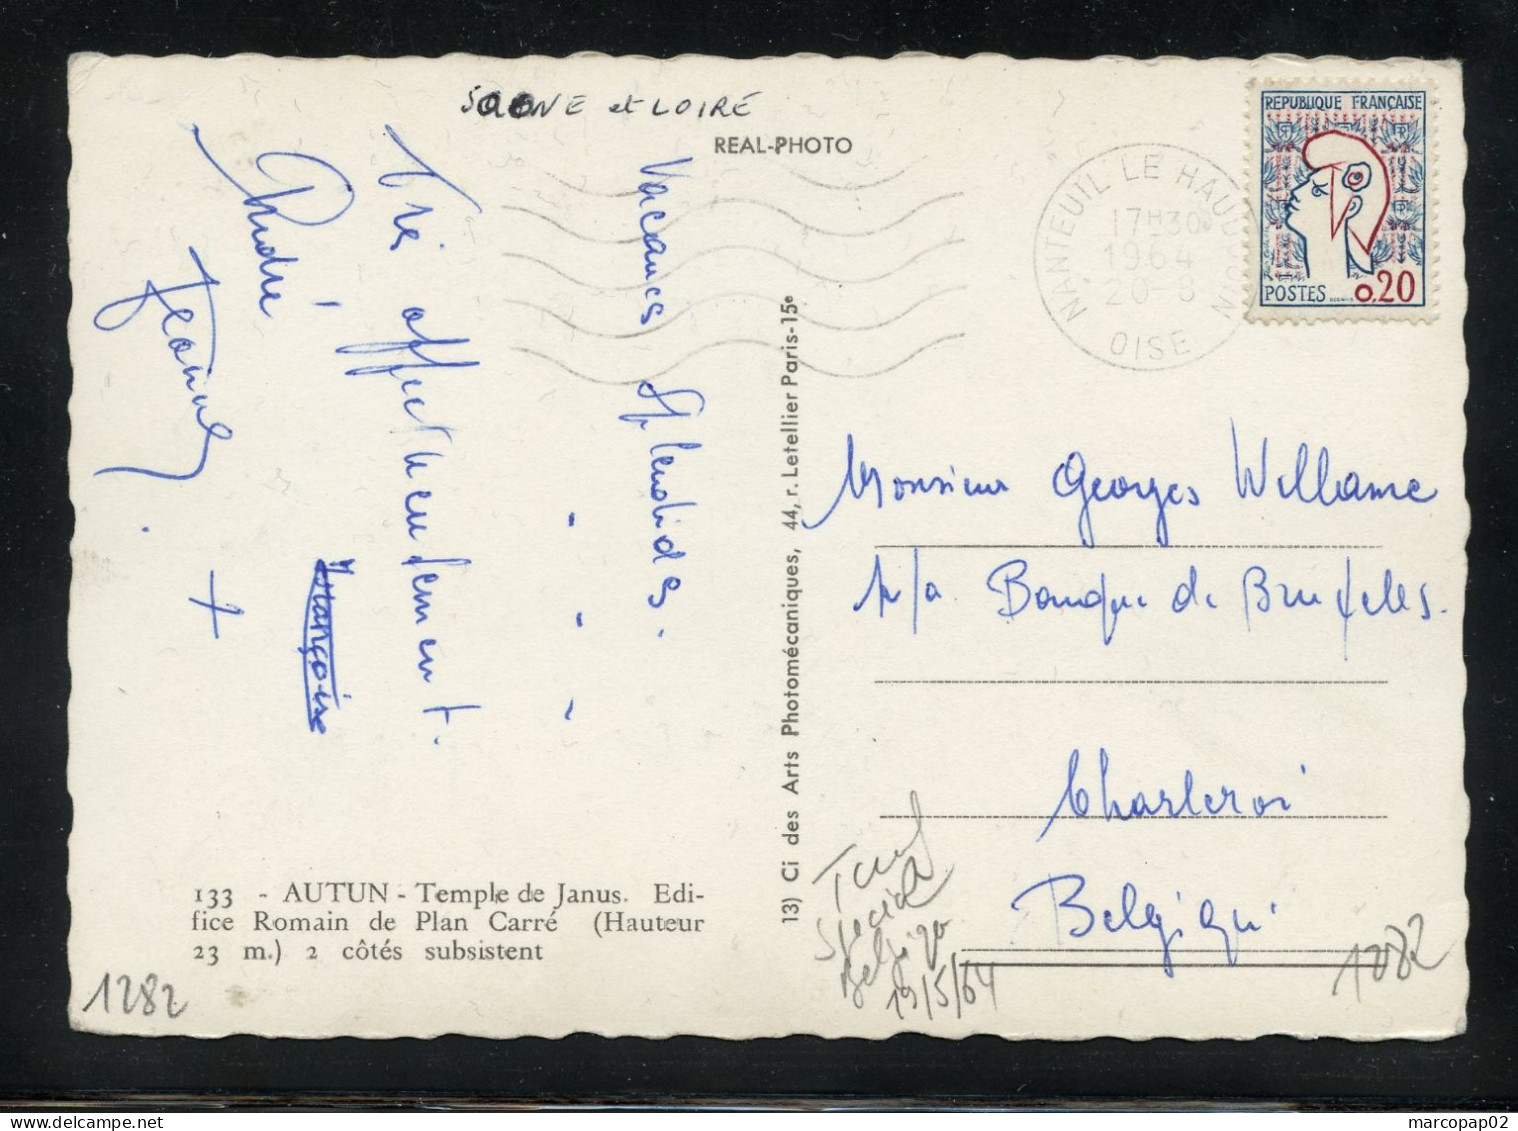 SAONE et LOIRE
REAL-PHOTO
Vacances Splendides.
. . .
Très affectueusement.
André,
Françoise
Jeanine
+
133 - AUTUN - Temple de Janus. Edi-
fice Romain de Plan Carré (Hauteur
23 m.) 2 côtés subsistent
1282
13) Ci des Arts Photomécaniques, 44, r. Letellier Paris-15e
NANTEUIL LE HAUDOUIN
17H30
1964
20-8
OISE
REPUBLIQUE FRANÇAISE
POSTES 0,20
Monsieur Georges Willame
p/a. Banque de Bruxelles.
Charleroi
Belgique
Tarif
Spécial
Belgique
19/5/64
1282
marcopap02